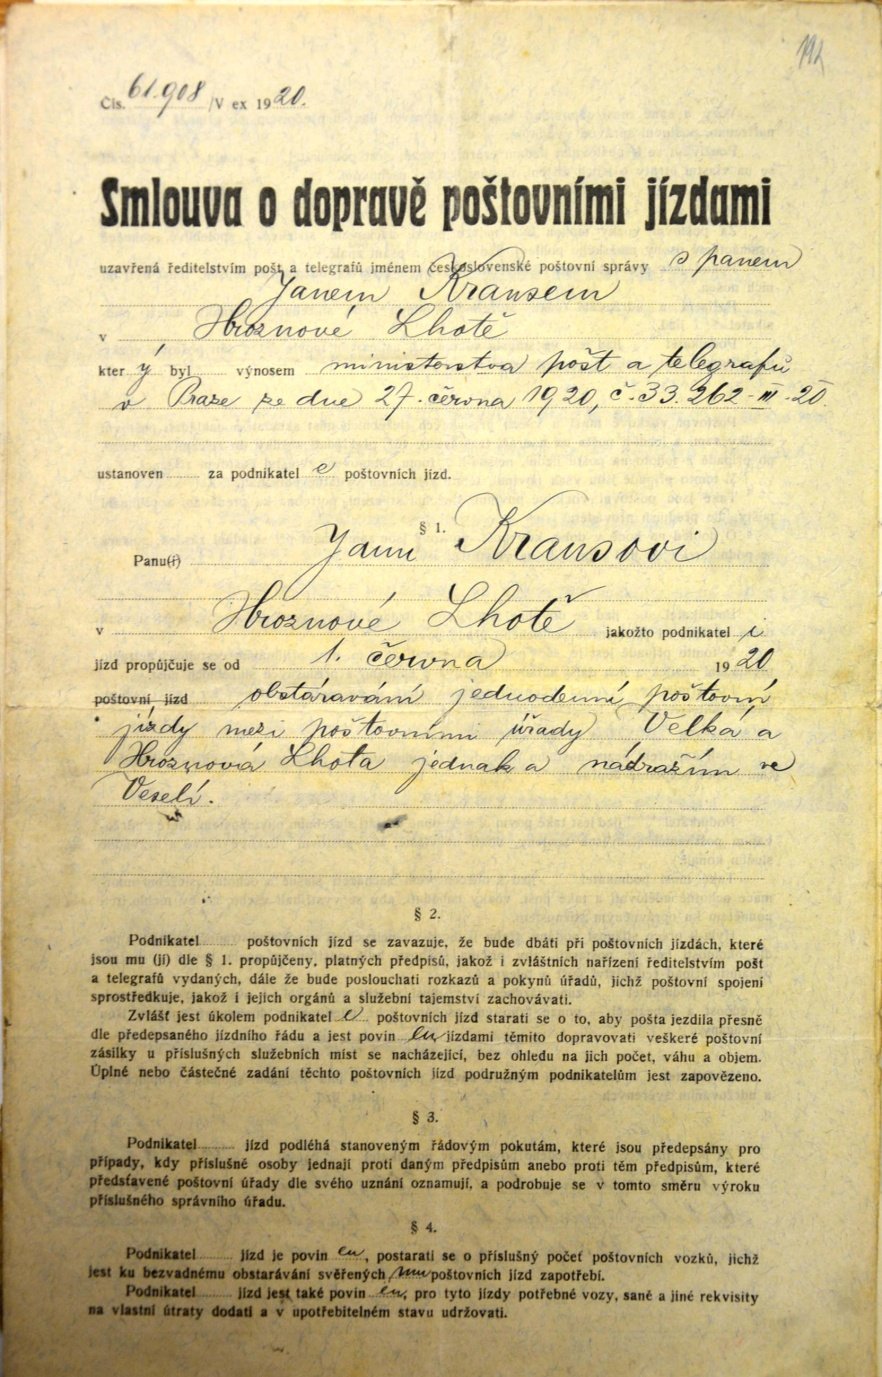 192
Čís. 61.908 /V ex 1920.
Smlouva o dopravě poštovními jízdami
uzavřená ředitelstvím pošt a telegrafů jménem československé poštovní správy s panem
Janem Krausem
v Hroznové Lhotě
který byl výnosem ministerstva pošt a telegrafů
v Praze ze dne 27. června 1920, č. 33.262-III-20
ustanoven za podnikatele poštovních jízd.
§ 1.
Panu(í) Janu Krausovi
v Hroznové Lhotě jakožto podnikateli
jízd propůjčuje se od 1. června 1920
poštovní jízd obstarávání jednodenní poštovní
jízdy mezi poštovními úřady Velká a
Hroznová Lhota jednak a nádražím ve
Veselí.
§ 2.
Podnikatel poštovních jízd se zavazuje, že bude dbáti při poštovních jízdách, které
jsou mu (jí) dle § 1. propůjčeny, platných předpisů, jakož i zvláštních nařízení ředitelstvím pošt
a telegrafů vydaných, dále že bude poslouchati rozkazů a pokynů úřadů, jichž poštovní spojení
sprostředkuje, jakož i jejich orgánů a služební tajemství zachovávati.
Zvlášť jest úkolem podnikatele poštovních jízd starati se o to, aby pošta jezdila přesně
dle předepsaného jízdního řádu a jest povinen jízdami těmito dopravovati veškeré poštovní
zásilky u příslušných služebních míst se nacházející, bez ohledu na jich počet, váhu a objem.
Úplné nebo částečné zadání těchto poštovních jízd podružným podnikatelům jest zapovězeno.
§ 3.
Podnikatel jízd podléhá stanoveným řádovým pokutám, které jsou předepsány pro
případy, kdy příslušné osoby jednají proti daným předpisům anebo proti těm předpisům, které
představené poštovní úřady dle svého uznání oznamují, a podrobuje se v tomto směru výroku
příslušného správního úřadu.
§ 4.
Podnikatel jízd je povinen, postarati se o příslušný počet poštovních vozků, jichž
jest ku bezvadnému obstarávání svěřených mu poštovních jízd zapotřebí.
Podnikatel jízd jest také povinen, pro tyto jízdy potřebné vozy, saně a jiné rekvisity
na vlastní útraty dodati a v upotřebitelném stavu udržovati.